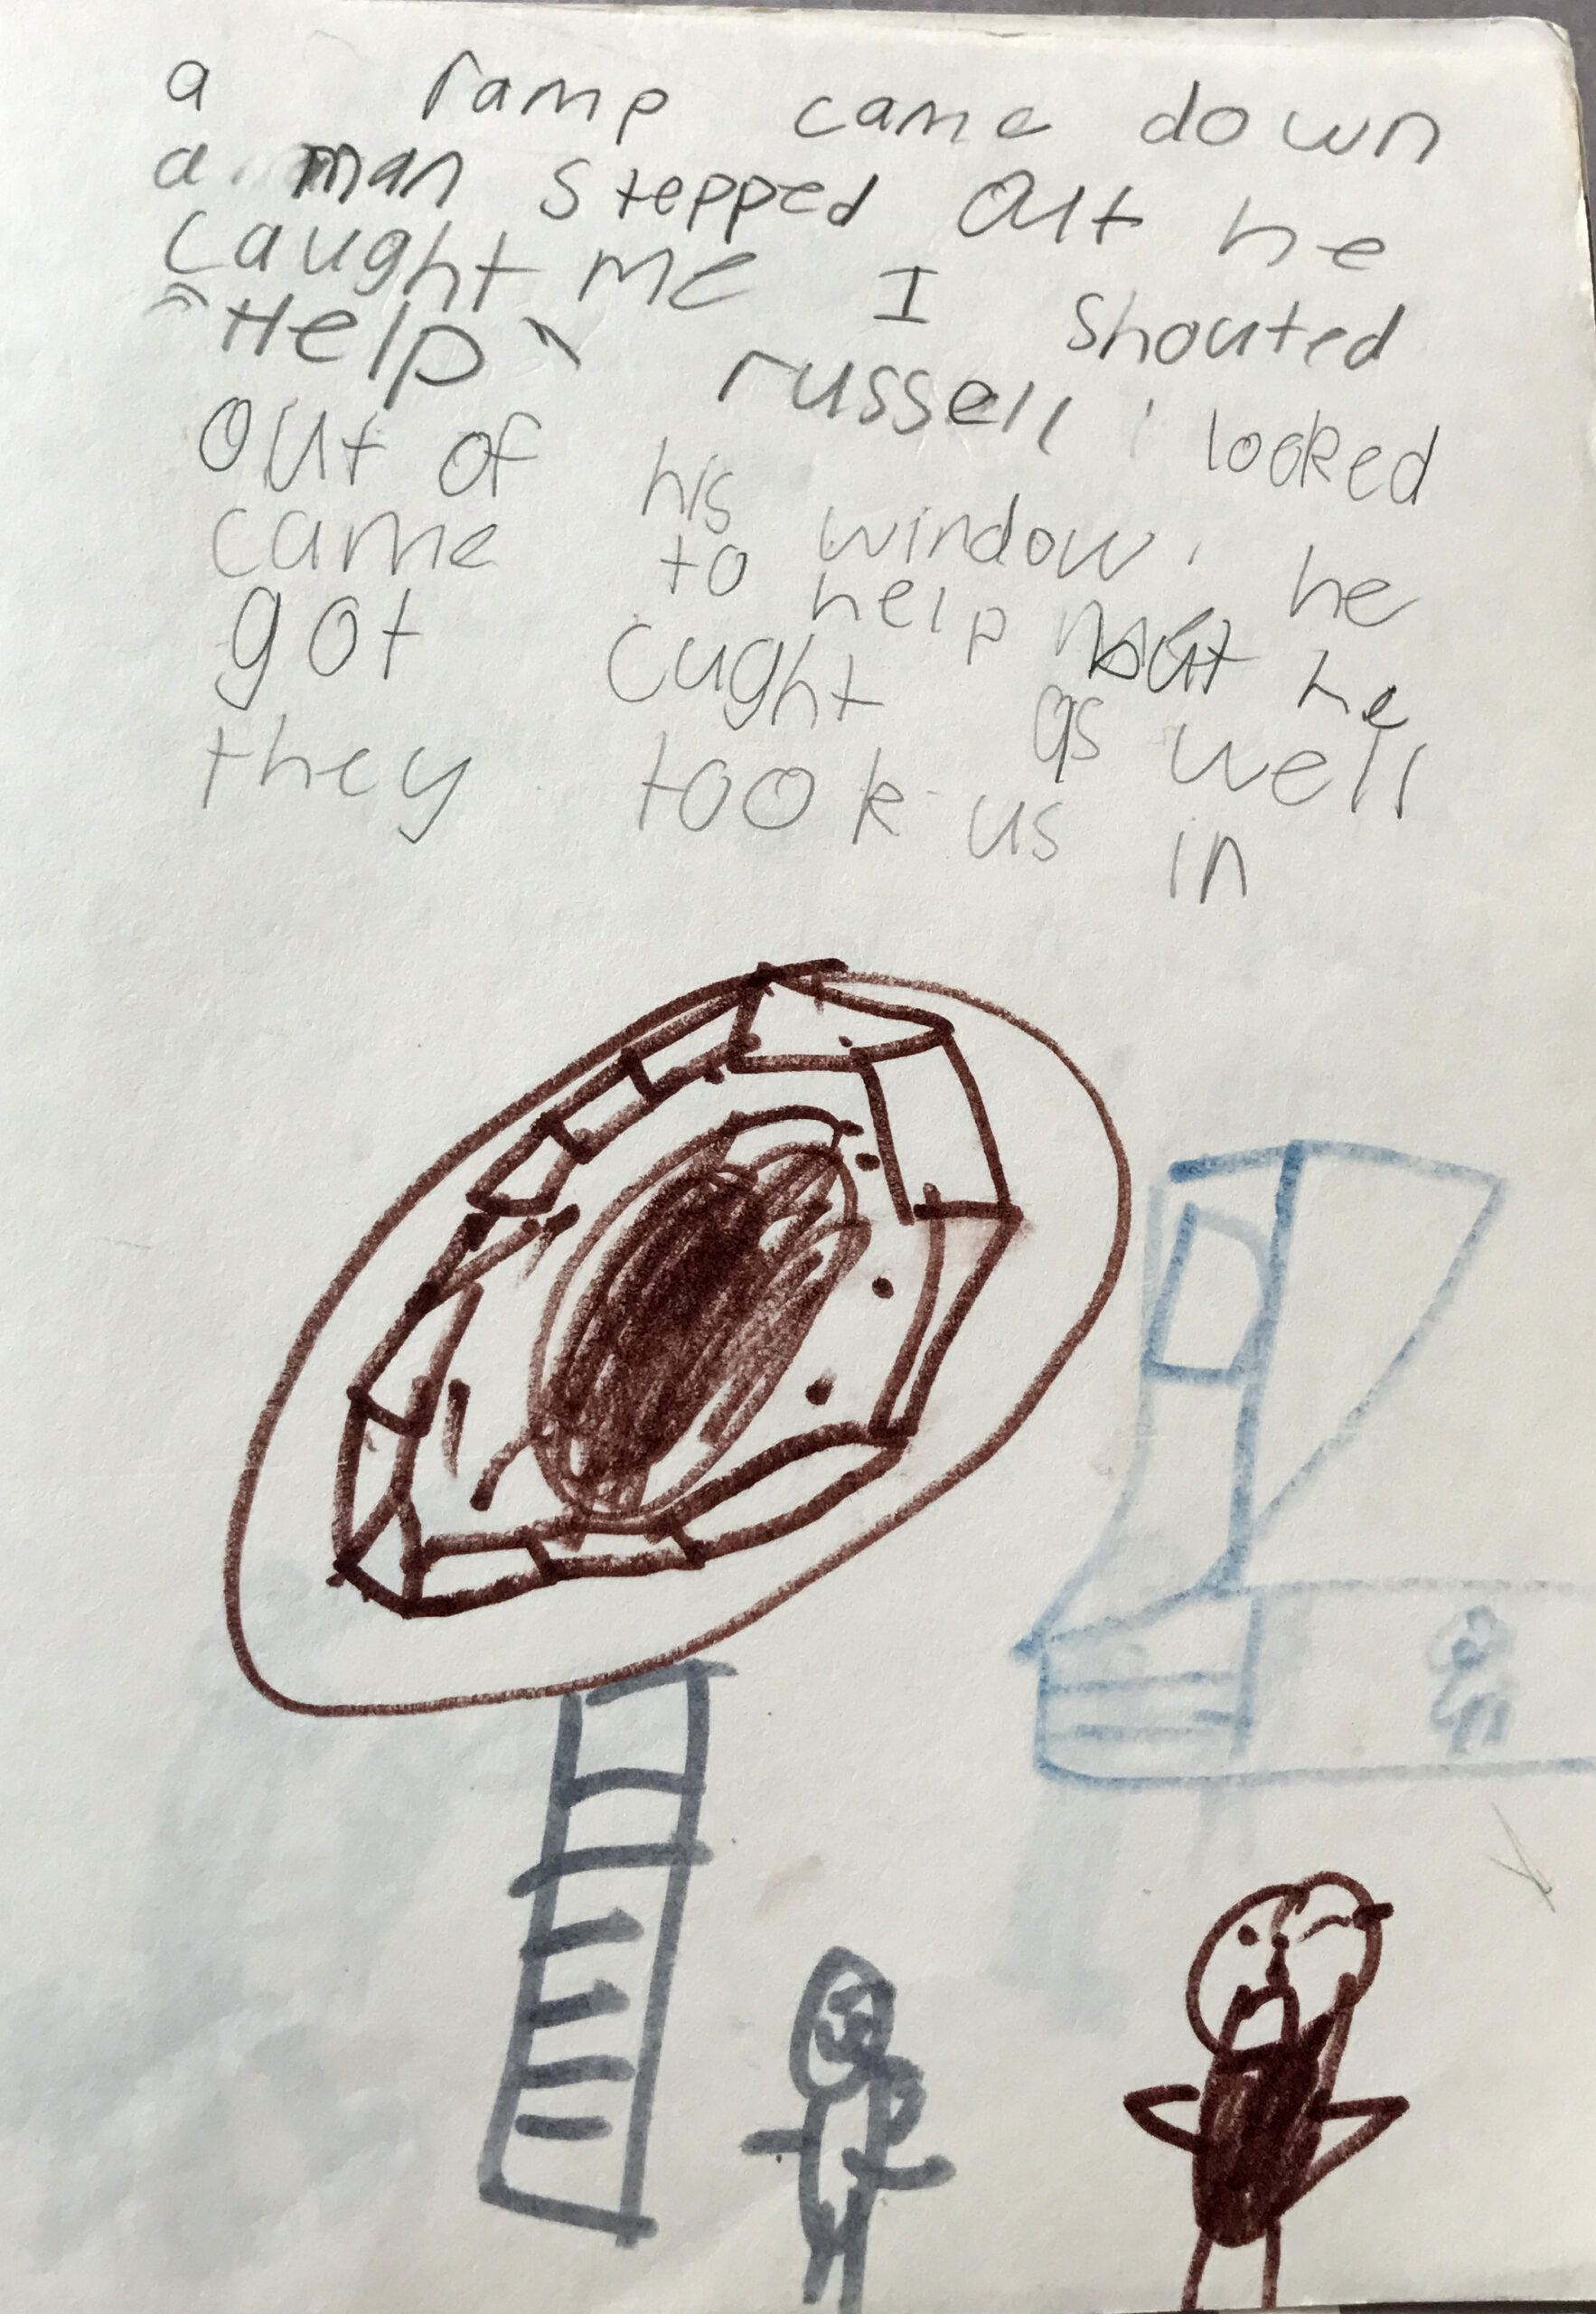 a ramp came down
a man stepped out he
caught me I shouted
"Help" russell looked
out of his window. he
came to help but he
got cught as well
they took us in